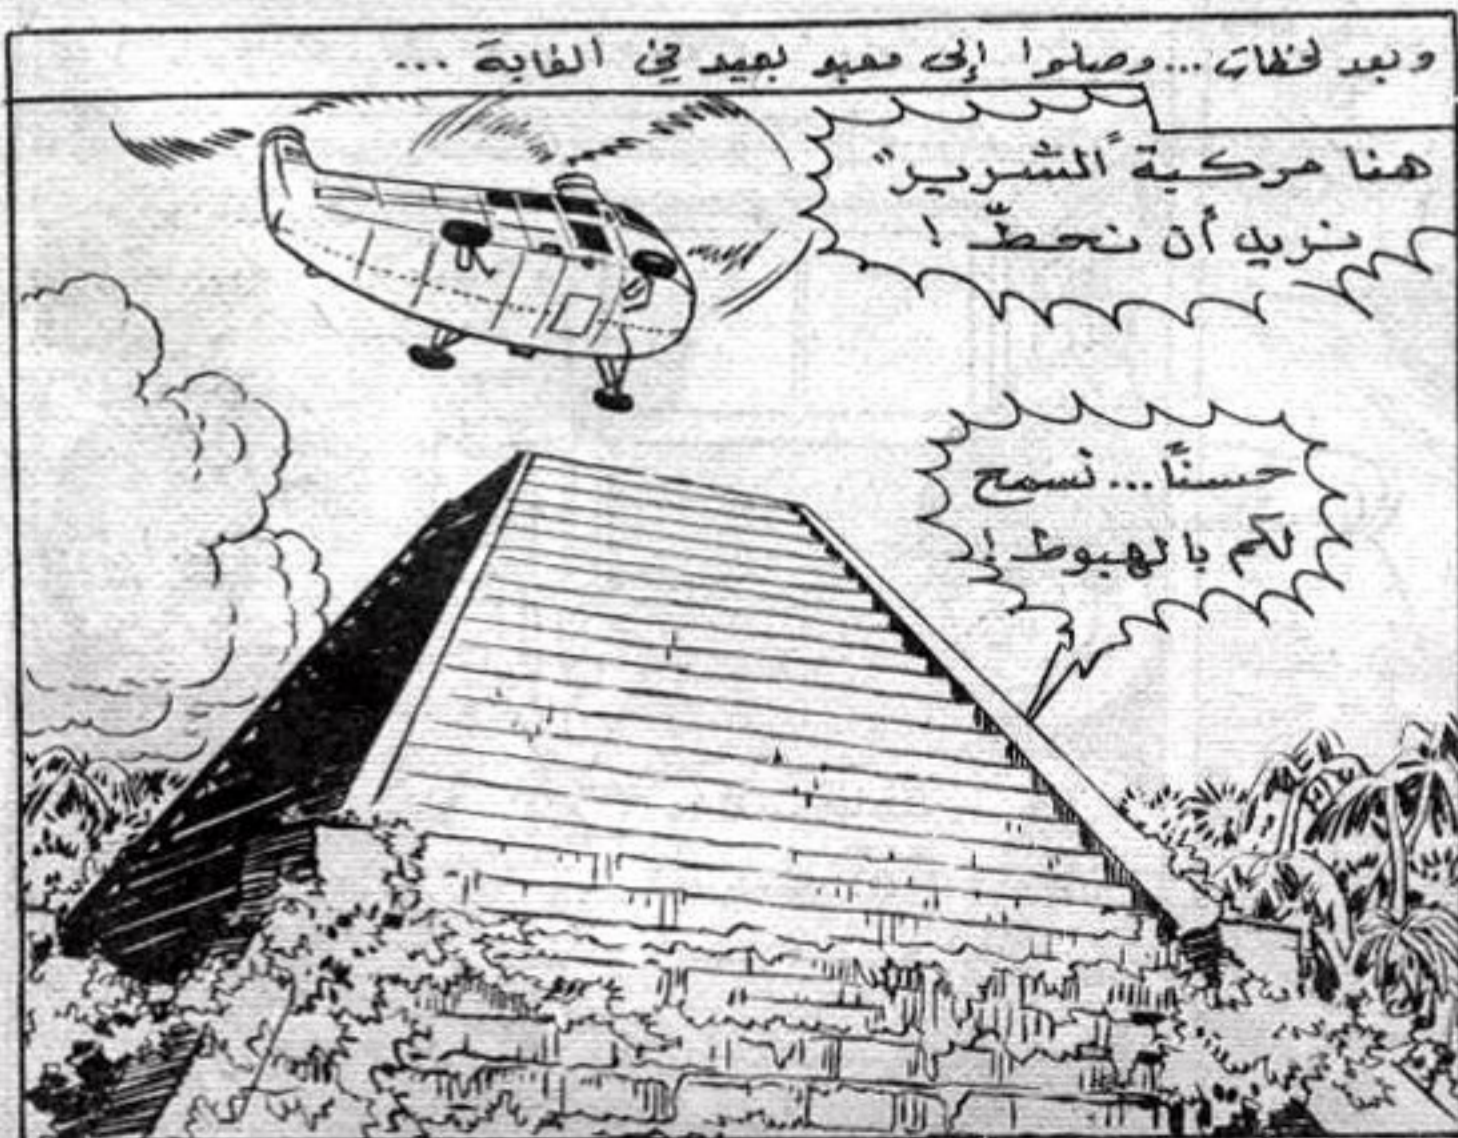 وبعد لحظات... وصلوا إلى معبد بعيد في الغابة ...
هنا مركبة "الشرير"
نريد أن نحطّ !
حسنًا... نسمح
لكم بالهبوط !